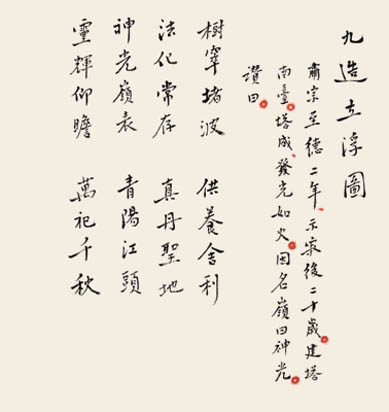 九造立浮圖
肅宗至德二年示寂後二十歲。建塔
南臺。塔成、發光如火。因名嶺曰神光。
讚曰。
樹窣堵波　供養舍利
法化常存　真丹聖地
神光嶺表　青陽江頭
靈輝仰瞻　萬祀千秋